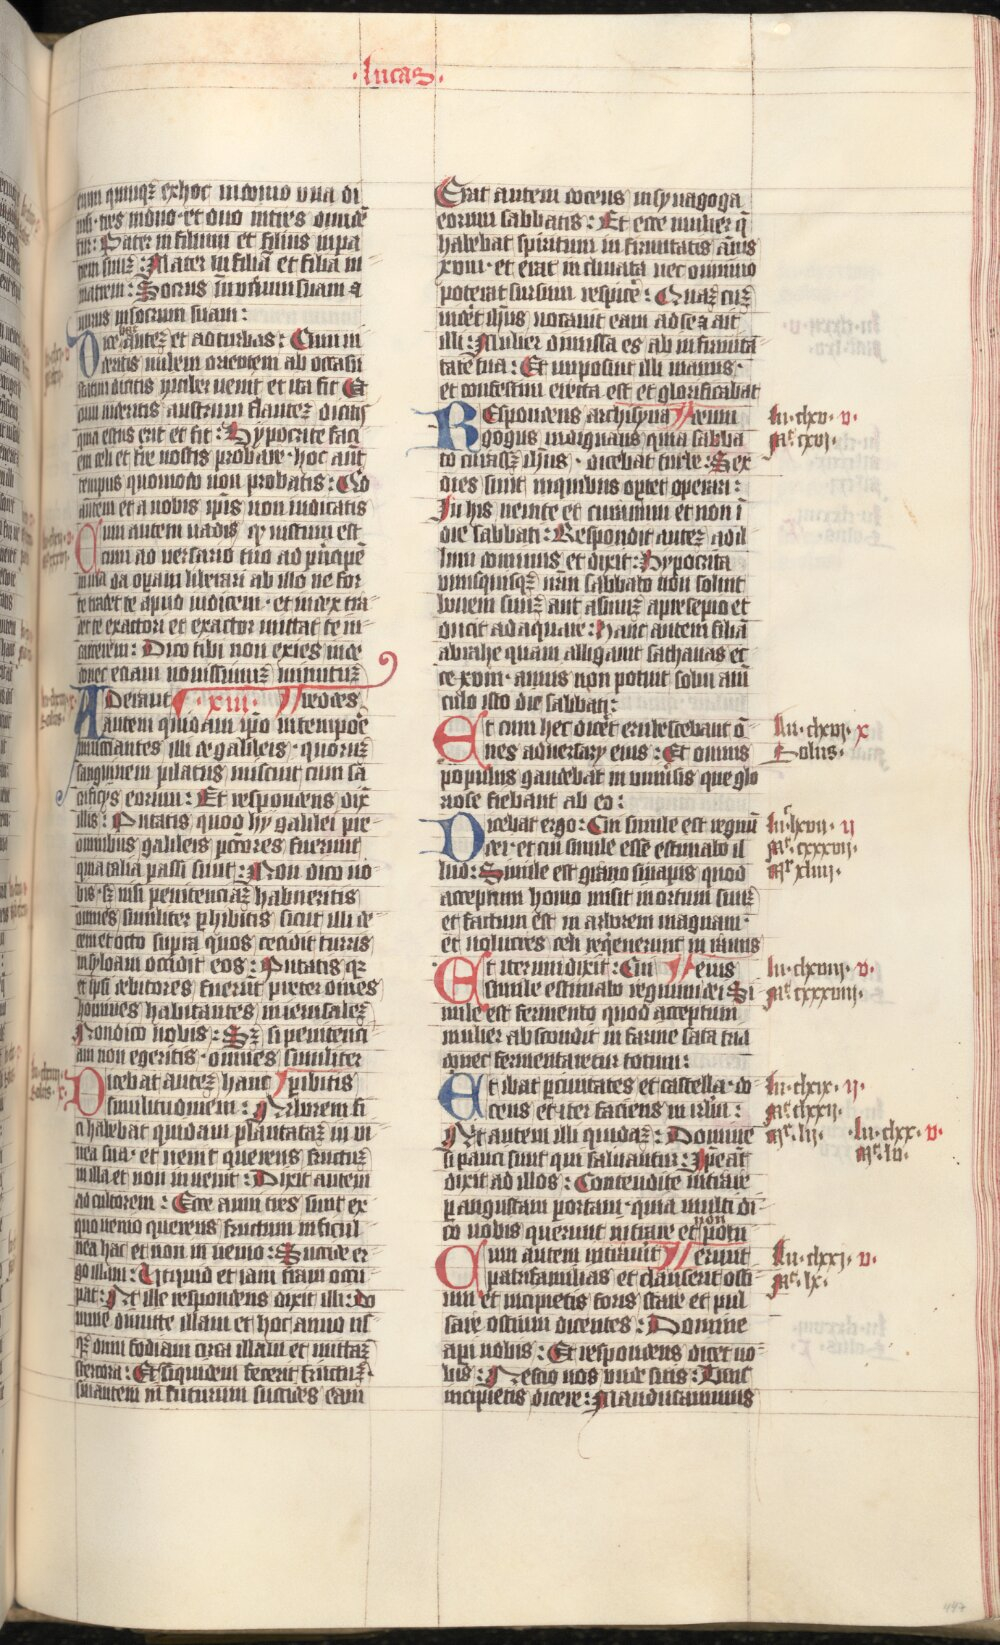 ·lucas·
enim quinqꝫ ex hoc in domo vna di
uisi· tres in duo· et duo in tres diuidē
tur: Pater in filium et filius in pa
trem suuꝫ: Mater in filiā et filia in
matrem: Socrus in nurum suam ⁊
nurus in socrum suam:
Dicebat autēꝫ et ad turbas: Cum vi
deritis nubem orientem ab occasu
statim dicitis ymber venit et ita fit Et
cum videritis austrum flanteꝫ dicitis
quia estus erit et fit: Hypocrite faci
em celi et terre nostis probare· hoc aut
tempus quomodo non probatis: Qd
autem et a uobis ipīs non iudicatis
Cum autem vadis qd iustum est
cum aduersario tuo ad prīcipē
in via da operam liberari ab illo ne for
te tradet te apud iudicem· et iudex tra
det te exactori et exactor mittat te in
carcerem: Dico tibi non exies inde
donec etiam nouissimuꝫ minutuꝫ
ADerant ·xiii· reddes
autem quidam ipō in tempore
nunciantes illi de galileis· quoruꝫ
sanguinem pilatus miscuit cum sā
crificiys eorum: Et respondens dix̄
illis: Putatis quod hy galilei pre
omnibus galileis pctōres fuerunt
quia talia passi sunt: Non dico uo
bis· sꝫ nisi penitenciaꝫ habueritis
omnes similiter peribitis sicut illi de
cem et octo supra quos cecidit turris
in syloam occidit eos: Putatis qꝛ
et ipsi debitores fuerūt preter omnes
homines habitantes in ierusaleꝫ
Non dico vobis: Sꝫ si penitenci
am non egeritis· omnes similiter
Dicebat auteꝫ hanc pibitis
similitudinem: Arborem fi
ci habebat quidam plantataꝫ in vi
nea sua· et venit querens fructuꝫ
in illa et non inuenit: Dixit autem
ad cultorem: Ecce anni tres sunt ex
quo venio querens fructum in ficul
nea hac et non inuenio: Succide er
go illam: Ut quid et iam terram occu
pat: At ille respondens dixit illi: do
mine dimitte illam et hoc anno us
qꝫ dum fodiam circa illam et mittaꝫ
stercora: Et siquidem fecerit fructuꝫ·
sin autem in futurum succides eam
Erat autem docens in synagoga
eorum sabbatis: Et ecce mulier q̄
habebat spiritum infirmitatis annis
xviii· et erat inclinata nec omnino
poterat sursum respicē: Quaꝫ cuꝫ
videt ihūs uocauit eam ad se ⁊ ait
illi: Mulier dimissa es ab infirmita
tate tua: Et imposuit illi manus·
et confestim erecta est et glorificabat
REspondens archisyna deum
gogus indignans quia sabba
to curasset ihūs· dicebat turbe: Sex
dies sunt in quibus optet operari:
In his venite et curamini et non ī
die sabbati: Respondit auteꝫ ad il
lum dominus et dixit: Hypocrita
vnusquisqꝫ urm̄ sabbato non soluit
bouem suuꝫ aut asinuꝫ a presepio et
ducit adaquare: Hanc autem filiā
abrahe quam alligauit sathanas ec
ce xviii· annis non potuit solui a uin
culo isto die sabbati:
Et cum hec dicēt erubescebant ō
nes aduersary eius: Et omnis
populus gaudebat in vniuersis que glo
riose fiebant ab eo:
Dicebat ergo: Cui simile est regnū
dei· et cui simile esse estimabo il
lud: Simile est grano sinapis quod
acceptum homo misit in ortum suuꝫ
et factum est in arborem magnam·
et uolucres celi reqēuerunt in ramis
Et iterum dixit: Cui eius
simile estimabo regnum dei: Si
mile est fermento quod acceptum
mulier abscondit in farine sata tria
donec fermentaretur totum:
Et ibat p ciuitates et castella do
cens et iter faciens in irlm̄:
Ait autem illi quidaꝫ: Domine
si pauci sunt qui saluantur: Ipe aūt
dixit ad illos: Contendite intrare
p angustam portam· quia multi di
co uobis querunt intrare et non potu
Cum autem intrauit erunt
paterfamilias et clauserit osti
um et incipietis foris stare et pul
sare ostium dicentes: Domine
aperi nobis: Et respondens dicet uo
bis: Nescio uos unde sitis: Tunc
incipietis dicere: Manducauimus
lu· clxv· v·
Mr̄ cxvi·
lu· clxvi· x
Solus·
lu· lxvii· ii
Mt̄· cxxxvii·
Mr̄ xliiii·
lu· clxviii· v·
Mt̄ cxxxviii·
lu· clxix· ii·
Mt̄ clxxii·
Mr̄· lii·
lu· clxx· v·
lu· clxxi· v·
Mt̄· lx·
447